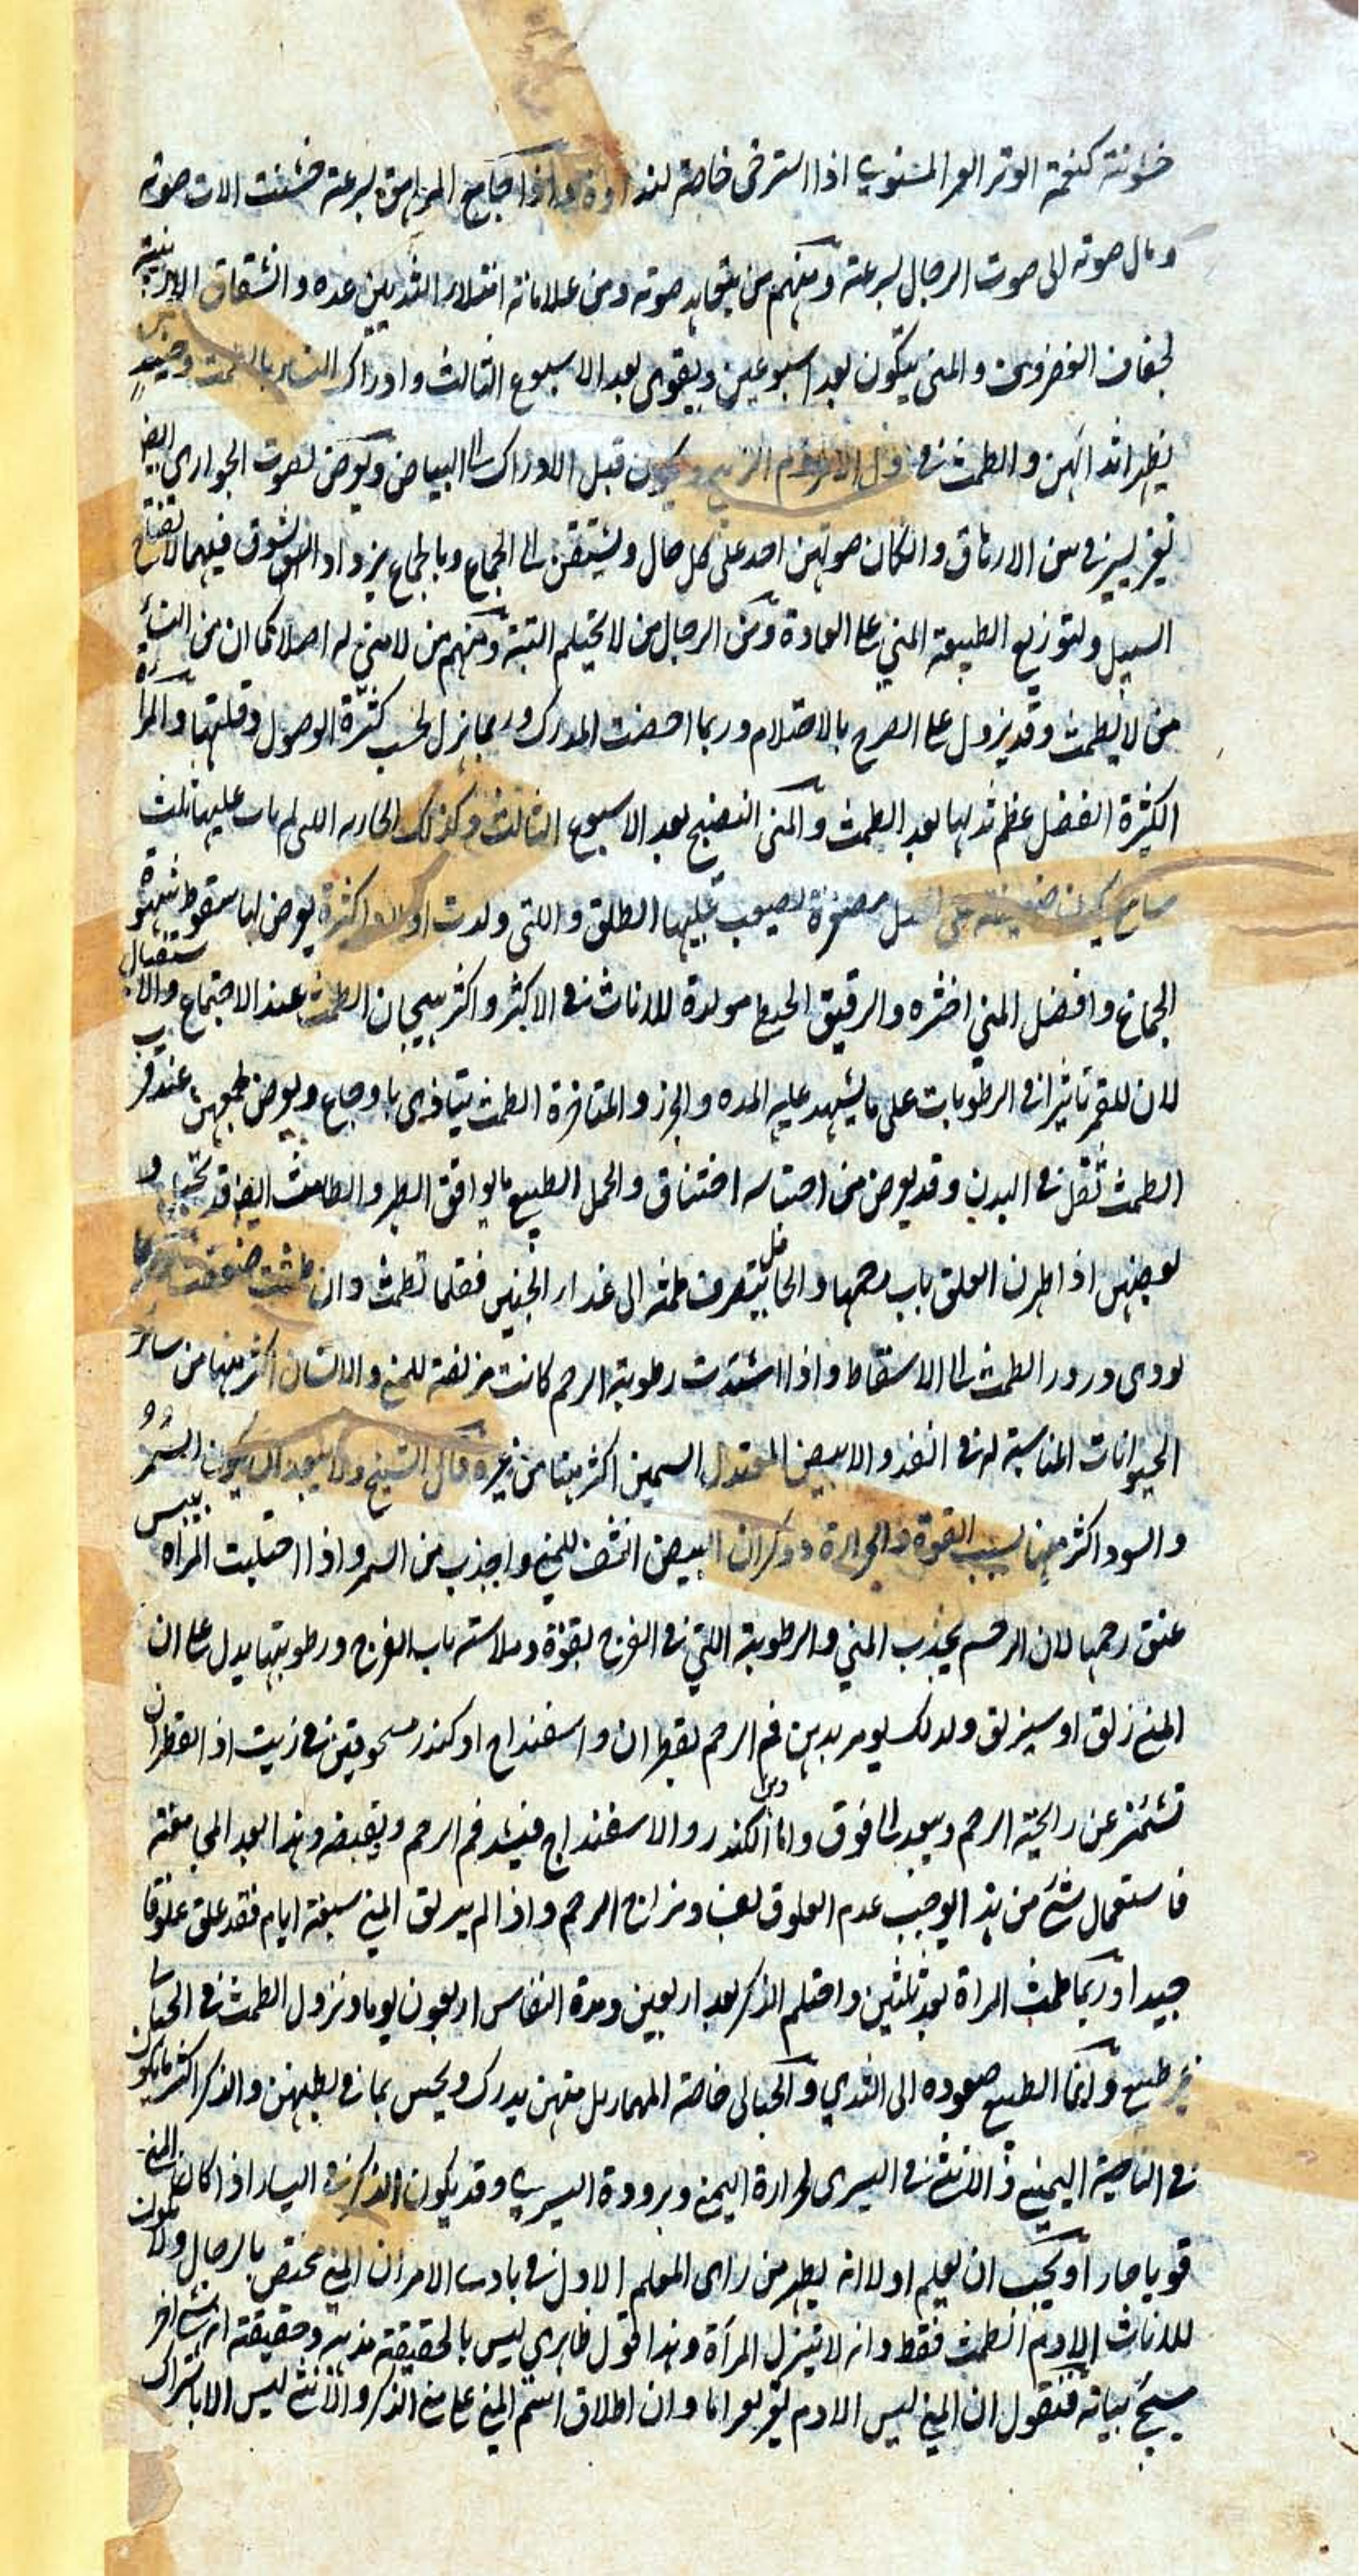 خشونته كنغمة الوتر الغير المستوي اذا استرخى خاصة لنداوة واذا جامع المراهق بسرعة خشنت الات صوته
ومال صوته الى صوت الرجال بسرعة ومنهم من يتجاهد صوته ومن علاماته امتلاء الثديين عنده وانشقاق الارنبة
لجفاف الغضروف والمني يتكون بعد اسبوعين ويقوى بعد الاسبوع الثالث وادراك النساء بالطمث وحينئذ
يظهر اثداآهن والطمث في اول الامر دم ويكون قبل الادراك الى البياض ويعرض لصوت الجواري ايضا
تغير يسير في سن الارهاق وان كان صوتهن احد على كل حال ويشتقن الى الجماع وبالجماع يزداد الشوق فيهما لانفتاح
السبيل ولتوزيع الطبيعة المني على العادة ومن الرجال من لا يحتلم البتة ومنهم من لا مني له اصلا كما ان من النساء
من لا يطمث وقد يزول على الصرع بالاحتلام وربما احضنت المدرك وربما نزل بحسب كثرة الوصول وقلتها والمرأة
الكثيرة الفضل عظم ثديها بعد الطمث والمني النضيج بعد الاسبوع الثالث وكذلك الجارية التي لم يات عليها ثلث
مصغرة يصعب عليها الطلق واللتي ولدت اولادا كثيرة يعرض لها سقوط شهوة
الجماع وافضل المني اخثره والرقيق الخيطي مولدة للاناث في الاكثر واكثر هيجان الطمث عند الاجتماع والاستقبال
لان للقمر تاثيرا في الرطوبات على ما يشهد عليه المده والجزر والمتاخرة الطمث يتاذى باوجاع ويعرض لجميعهن عند قرب
الطمث ثقل في البدن وقد يعرض من احتباسه اختناق والحمل الطبيعي ما يوافق الطهر والطامث ايضا قد تحبل و
بعضهن اذا طهرن انغلق باب رحمها والحامل يتصرف طمثه الى غذاء الجنين فقلما تطمث وان طمثت ضعفت
يودى درور الطمث الى الاسقاط واذا اشتدت رطوبة الرحم كانت مزلقة للمني والانسان اكثر منيا من سائر
الحيوانات المناسبة له في القد والابيض المعتدل السمين اكثر منيا من غيره قال الشيخ ولا يبعد ان يكون السمر
والسود اكثر منيا بسبب القوة والحرارة وذكر ان البيض انشف للمني واجذب من السمر واذا احتبلت المراة يبس
عنق رحمها لان الرحم يجذب المني والرطوبة اللتي في الفرج بقوة وملاسة باب الفرج ورطوبتها يدل على ان
المني زلق او سيزلق ولذلك يومر بدهن فم الرحم بقطران واسفنداج او كندر مسحوقين في زيت اذ القطران
تشمئز عن رائحته الرحم ويبعد الى فوق واما الكندر والاسفنداج فيشد فم الرحم ويقبضه وهذا بعد المجامعة
فاستعمال شئ من هذا يوجب عدم العلوق لفساد مزاج الرحم واذا لم يزلق المني سبعة ايام فقد علق علوقا
جيدا وربما طمث المراة بعد ثلثين واحتلم الذكر بعد اربعين ومدة النفاس اربعون يوما ونزول الطمث في الحبالى
غير طبيعي وانما الطبيعي صعوده الى الثدي والحبالى خاصة منهن يدرك ويحس بما في بطنهن والذكر اكثر ما يكون
في الناحية اليمنى والانثى في اليسرى لحرارة اليمنى وبرودة اليسرى وقد يكون الذكر في اليسار اذا كان المني
قويا حارا ويجب ان يعلم اولا انه يظهر من راى المعلم الاول في بادى الامر ان المني مختص بالرجال ولا يكون
للاناث الا دم الطمث فقط وانه لا ينزل المرأة وهذا القول ظاهري ليس بالحقيقة مذهبه وحقيقته انه شئ اخر
سيجئ بيانه فنقول ان المني ليس الا دم تغير لعر اما وان اطلاق اسم المني على مني الذكر والانثى ليس الا باشتراك